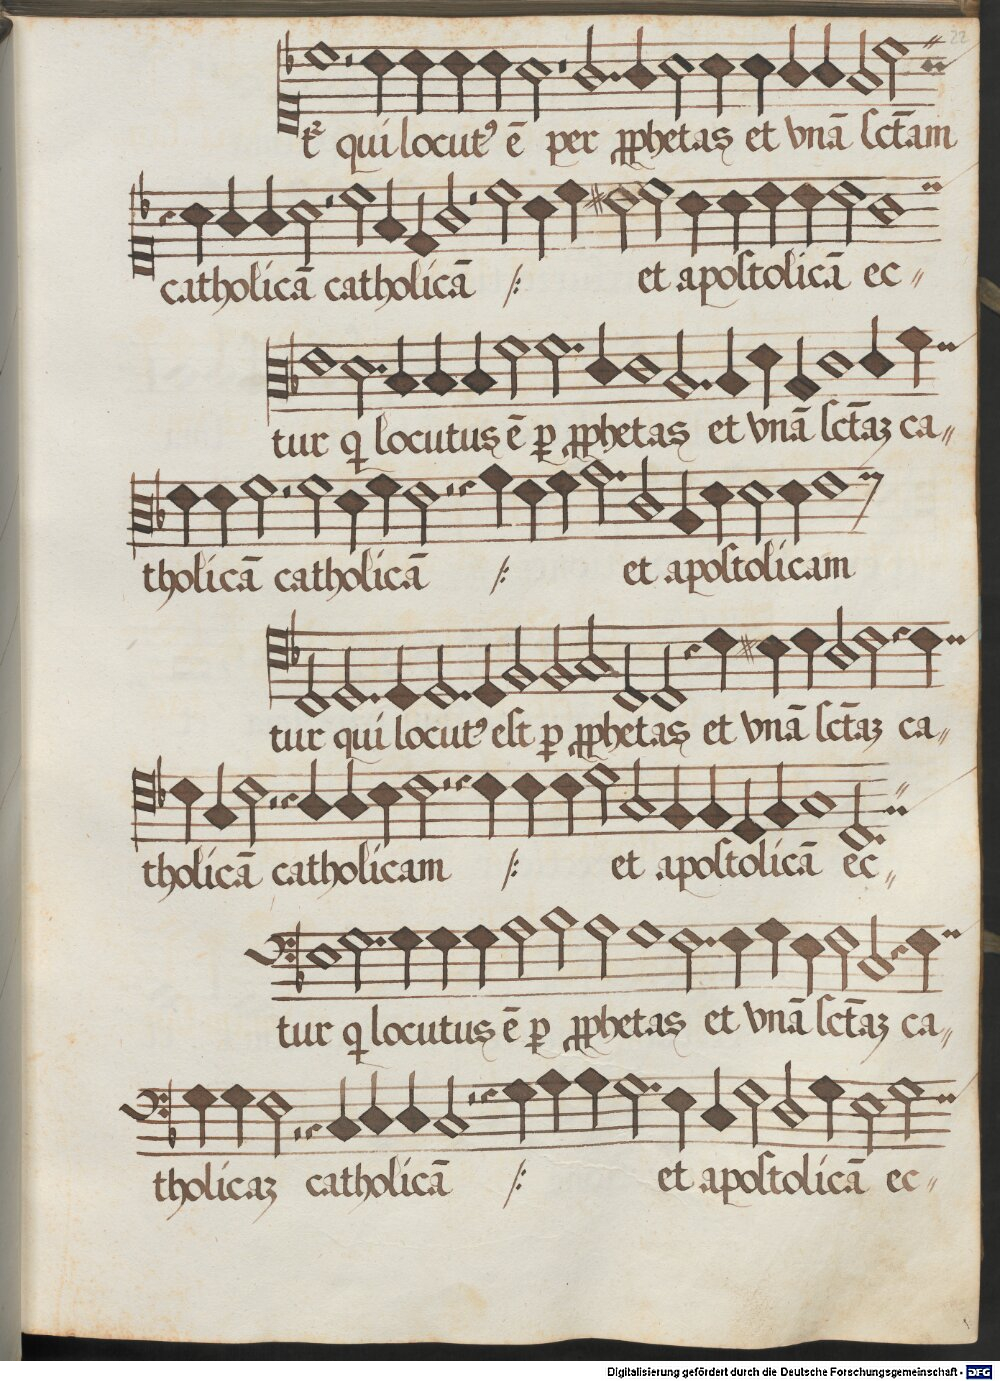 22
tꝛ qui locutꝰ ē per ꝓphetas et vnā sct̄am
catholicā catholicā ⁒ et apostolicā ec〃
tur q locutus ē ꝑ ꝓphetas et vnā sct̄aꝫ ca〃
tholicā catholicā ⁒ et apostolicam
tur qui locutꝰ est ꝑ ꝓphetas et vnā sct̄aꝫ ca〃
tholicā catholicam ⁒ et apostolicā ec〃
tur q locutus ē ꝑ ꝓphetas et vnā sct̄aꝫ ca〃
tholicaꝫ catholicā ⁒ et apostolicā ec〃
Digitalisierung gefördert durch die Deutsche Forschungsgemeinschaft - DFG